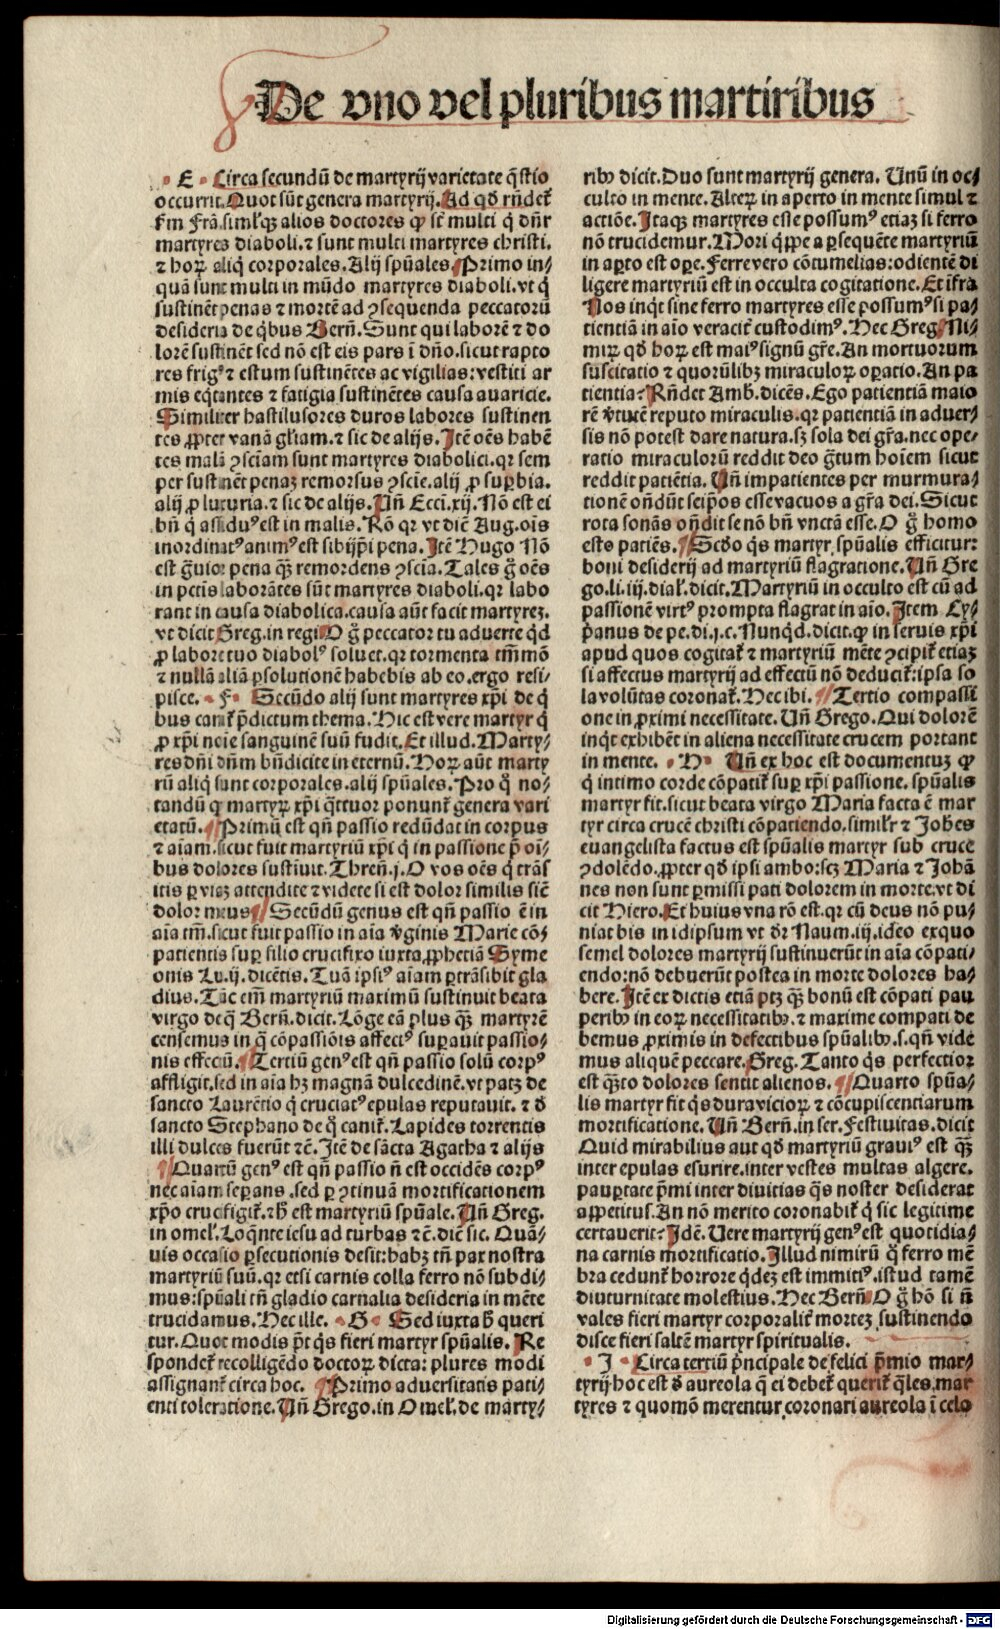 De vno vel pluribus martiribus
E Circa secundū de martyrij varietate q̄stio
occurrit. Quot sūt genera martyrij. Ad qd̄ rn̄det̄
martyres diaboli. ⁊ sunt multi martyres christi.
⁊ hoꝝ aliq̄ corporales. Alij spūales. Primo in⸗
quā sunt multi in mūdo martyres diaboli. vt q̄
sustinēt penas ⁊ mortē ad ꝯsequenda peccatorū
desideria de qͥbus Bern̄. Sunt qui laborē ⁊ do
lorē sustinēt sed nō est eis pars ī dn̄o. sicut rapto
res frigꝰ ⁊ estum sustinētes ac vigilias: vestiti ar
mis eqͥtantes ⁊ fatigia sustinētes causa auaricie.
Similiter hastilusores duros labores sustinen
tes ꝓpter vanā gl̄iam. ⁊ sic de alijs. Itē oēs habē
tes malā ꝯsciam sunt martyres diabolici. qꝛ sem
per sustinēt penaꝫ remorsus ꝯscie. alij ꝓ suꝑbia.
alij ꝓ luxuria. ⁊ sic de alijs. Vn̄ Ecci. xij. Nō est ei
bn̄ qͥ assiduꝰ est in malis. Rō qꝛ vt dic̄ Aug. oīs
inordinatꝰ animꝰ est sibijp̄i pena. Itē Hugo Nō
est gͣuior pena qꝫ remordens ꝯscia. Tales g̊ oēs
in pctīs laborātes sūt martyres diaboli. qꝛ labo
rant in causa diabolica. causa aūt facit martyreꝫ.
vt dicit Greg. in regi. O g̊ peccator tu aduerte qd̄
ꝓ labore tuo diabolꝰ soluet. qꝛ tormenta tm̄mō
⁊ nullā aliā ꝑsolutionē habebis ab eo. ergo resi⸗
pisce. F Secūdo alij sunt martyres xp̄i de qͥ
bus canit̄ p̄dictum thema. Hic est vere martyr qͥ
ꝓ xp̄i noīe sanguinē suū fudit. Et illud. Marty⸗
res dn̄i dn̄m bn̄dicite in eternū. Hoꝝ aūt marty
rū aliqͥ sunt corporales. alij spūales. Pro q̊ no⸗
tandū qꝫ martyꝝ xp̄i qͣttuor ponunt̄ genera vari
etatū. Primū est qn̄ passio redūdat in corpus
⁊ aīam. sicut fuit martyriū xp̄i qͥ in passione p̄ oī⸗
bus dolores sustinuit. Thren̄. j. O vos oēs qͥ trās
itis ꝑ viaꝫ attendite ⁊ videte si est dolor similis sic̄
dolor meus. Secūdū genus est qn̄ passio ē in
aīa tm̄. sicut fuit passio in aīa v̄ginis Marie cō⸗
patientis suꝑ filio crucifixo iuxta ꝓphetiā Syme
onis Lu. ij. dicētis. Tuā ipsiꝰ aīam ꝑtrāsibit gla
dius. Tūc em̄ martyriū maximū sustinuit beata
virgo de qͣ Bern̄. dicit. Lōge eā plus qꝫ martyrē
censemus in qͣ cōpassiōis affectꝰ suꝑauit passio⸗
nis effectū. Tertiū genꝰ est qn̄ passio solū corpꝰ
affligit. sed in aīa hꝫ magnā dulcedinē. vt patꝫ de
sancto Laurētio qͥ cruciatꝰ epulas reputauit. ⁊ d̄
sancto Stephano de q̊ canit̄. Lapides torrentis
illi dulces fuerūt ⁊c̄. Itē de sācta Agatha ⁊ alijs
Quartū genꝰ est qn̄ passio n̄ est occidēs corpꝰ
nec aīam seꝑans. sed ꝑ ꝯtinuā mortificationem
xp̄o crucifigit̄. ⁊ h̄ est martyriū spūale. Vn̄ Greg.
in omel̄. Loqͣnte iesu ad turbas ⁊ c̄. dic̄ sic. Quā⸗
uis occasio ꝑsecutionis desit: habꝫ tn̄ pax nostra
martyriū suū. qꝛ etsi carnis colla ferro nō subdi⸗
mus: spūali tn̄ gladio carnalia desideria in mēte
trucidamus. Hec ille. G Sed iuxta h̄ queri
tur. Quot modis p̄t qͥs fieri martyr spūalis. Re
spondet̄ recolligēdo doctoꝝ dicta: plures modi
assignant̄ circa hoc. Primo aduersitatis pati⸗
enti toleratione. Vn̄ Grego. in Omel̄. de marty⸗
ribꝰ dicit. Duo sunt martyrij genera. Unū in oc⸗
culto in mente. Alteꝝ in aperto in mente simul ⁊
actiōe. Itaqꝫ martyres esse possumꝰ etiaꝫ si ferro
nō trucidemur. Mori qͥppe a ꝑsequēte martyriū
in aꝑto est oꝑe. Ferre vero cōtumelias: odientē di
ligere martyriū est in occulta cogitatione. Et ifra
Nos inqͥt sine ferro martyres esse possumꝰ si pa⸗
tientiā in aīo veracit̄ custodimꝰ. Hec Greg. Ni⸗
miꝝ qd̄ hoꝝ est maiꝰ signū gr̄e. An mortuorum
suscitatio ⁊ quorūlibꝫ miraculoꝝ oꝑatio. An pa
tientia? Rn̄det Amb̄. dicēs. Ego patientiā maio
rē v̄tutē reputo miraculis. qꝛ patientiā in aduer⸗
sis nō potest dare natura. sꝫ sola dei gr̄a. nec ope⸗
ratio miraculorū reddit deo gͣtum hoīem sicut
reddit patiētia. Vn̄ impatientes per murmura⸗
tionē ondūt seip̄os esse vacuos a gr̄a dei. Sicut
rota sonās ondit se nō bn̄ vnctā esse. O g̊ homo
esto patiēs. Scd̄o qͥs martyr spūalis efficitur:
boni desiderij ad martyriū flagratione. Vn̄ Gre
go. li. iij. dial̄. dicit. Martyriū in occulto est cū ad
passionē virtꝰ prompta flagrat in aīo. Item Cy⸗
p̄anus de pe. di. j. c. Nunqͥd. dicit. ꝙ in seruis xp̄i
apud quos cogitat̄ ⁊ martyriū mēte ꝯcipit̄ etiaꝫ
si affectus martyrij ad effectū nō deducit̄: ipsa so
la volūtas coronat̄. Hec ibi. Tertio compassi
one in ꝓximi necessitate. Vn̄ Grego. Qui dolorē
inqͥt exhibēt in aliena necessitate crucem portant
in mente. H Vn̄ ex hoc est documentuꝫ ꝙ
qͥ intimo corde cōpatit̄ suꝑ xp̄i passione. spūalis
martyr fit. sicut beata virgo Maria facta ē mar
tyr circa crucē christi cōpatiendo. simil̄r ⁊ Johēs
euangelista factus est spūalis martyr sub cruce
ꝯdolēdo. ꝓpter qd̄ ipsi ambo: scꝫ Maria ⁊ Johā
nes non sunt ꝑmissi pati dolorem in morte. vt di
cit Hiero. Et huius vna rō est. qꝛ cū deus nō pu⸗
niat bis in idipsum vt dr̄ Naum. iij. ideo exquo
semel dolores martyrij sustinuerūt in aīa cōpati⸗
endo: nō debuerūt postea in morte dolores ha⸗
bere. Itē ex dictis etiā ptꝫ qꝫ bonū est cōpati pau
peribꝰ in eoꝝ necessitatibꝰ. ⁊ maxime compati de
bemus ꝓximis in defectibus spūalibꝰ. s. qn̄ vide
mus aliquē peccare. Greg. Tanto qͥs perfectior
est qͣto dolores sentit alienos. Quarto spūa⸗
lis martyr fit qͥs dura vicioꝝ ⁊ cōcupiscentiarum
mortificatione. Vn̄ Bern̄. in ser. Festiuitas. dicit
Quid mirabilius aut qd̄ martyriū grauiꝰ est qꝫ
inter epulas esurire. inter vestes multas algere.
pauꝑtate p̄mi inter diuitias qͣs noster desiderat
appetitus. An nō merito coronabit̄ qͥ sic legitime
certauerit? Idē. Vere martyrij genꝰ est quotidia⸗
na carnis mortificatio. Illud nimirū qͦ ferro mē
bra cedunt̄ horrore qͥdeꝫ est immitiꝰ. istud tamē
diuturnitate molestius. Hec Bern̄. O g̊ hō si n̄
vales fieri martyr corporalit̄ morteꝫ sustinendo
disce fieri saltē martyr spiritualis.
J Circa tertiū pͥncipale de felici p̄mio mar⸗
tyrij hoc est d̄ aureola q̄ ei debet̄ querit̄ qͣles mar
tyres ⁊ quomō merentur coronari aureola ī celo
Digitalisierung gefördert durch die Deutsche Forschungsgemeinschaft - DFG